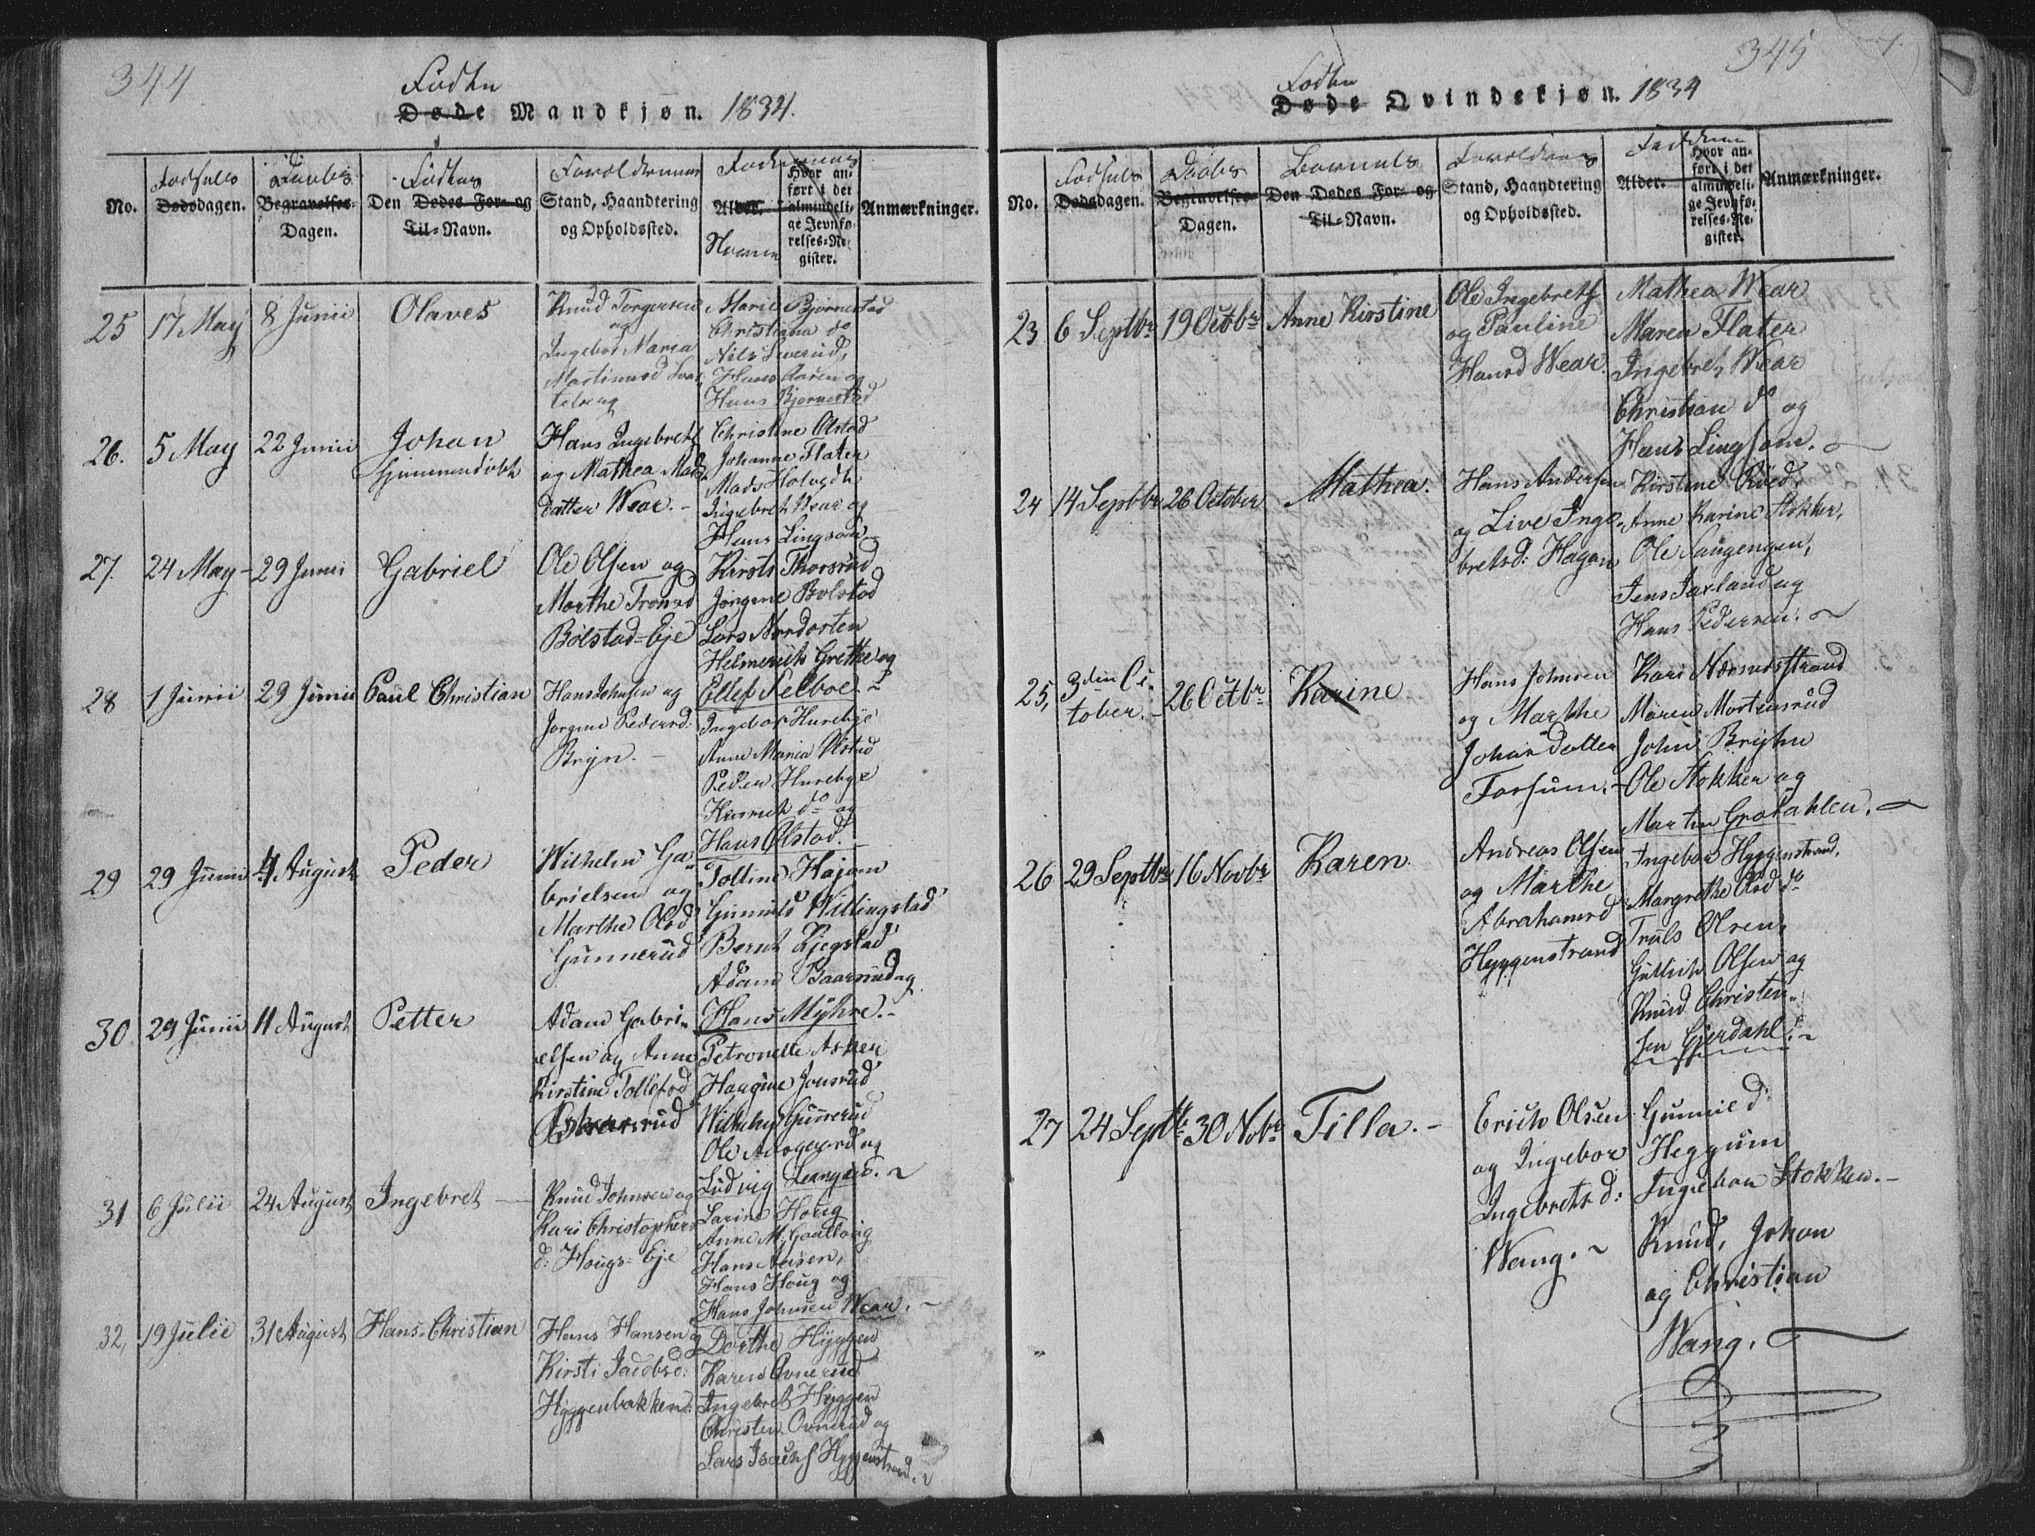 344
Fødte
Døde Mandkjøn. 1834.
No.
Fødsels
Dødsdagen.
Daabs
Begravelses-
Dagen.
Fødtes
Den Dødes For- og
Til-Navn.
Forældrenes
Stand, Haandtering
og Opholdssted.
Faddernes
Alder.
Navne
Hvor an-
ført i det
almindeli-
ge Jevnfø-
relses-Re-
gister.
Anmærkninger.
25 17 May 8 Junii Olaves
Knud Torgersen
og
Ingebor Maria
Martinusd
Marie Bjørnestad
Christiana do
Nils
Hans
Hans Bjørnestad
26. 5 May 22 Junii Johan
Hans Ingebrets
og Mathea Mads
datter Wear.-
Christine Olstad
Johanne Flater
Mads
Ingebret Wear og
Hans
27. 24 May- 29 Junii Gabriel
Ole Olsen og
Marthe Tronsd
Bolstad-Eje
Kirsti Thorsrud
Jørgine Bolstad
Lars
Helmerich Grette og
Ellef Selboe.
28 1 Junii 29 Junii Paul Christian
Hans Johnsen og
Jørgine Pedersd:
Bryn.-
Ingebor Hurebye
Anne Maria Olstad
Peder Hurebye
do og
Hans Olstad.
29 29 Junii 4 August Peder
Wilhelm Ga-
brielsen og
Marthe Olsd
Gunnerud
Tolline Hajum
Gunnild Willingstad
Bernt
Adam Baarsrud og
Hans Myhre.-
30 29 Junii 11 August Petter
Adam Gabri-
elsen og Anne
Kirstine Tollefsd
Petronelle Asker
Haagine Jonsrud
Wilhelm Gunnerud
Ole og
Ludvig
31 6 Julii 24 August Ingebret
Knud Johnsen og
Kari Christophers
d: Hougs-Eje
Larine Houg
Anne M:
Hans
Hans Houg og
Hans Johnsen Wear.
32, 19 Julii 31 August Hans-Christian
Hans Hansen og
Kirsti Jacobsd:
Hyggenbakken
Dorthe Hyggen
Karen Ovnerud
Ingebret Hyggen
Christen Ovnerud og
Lars Isachs Hyggenstrand.
345
Fødte
Døde Qvindekjøn. 1834
No.
Fødsels
Dødsdagen.
Daabs
Begravelses-
Dagen.
Barnets
Den Dødes For- og
Til-Navn.
Forældrenes
Stand, Haandtering
og Opholdssted.
Faddernes
Alder.
Hvor an-
ført i det
almindeli-
ge Jevnfø-
relses-Re-
gister.
Anmærkninger.
23 6 Septbr 19 Octbr Anne Kirstine
Ole Ingebrets
og Pauline
Hansd Wear.
Mathea Wear
Maren Flater
Ingebret Wear
Christian do og
Hans Lingsom.
24 14 Septbr 26 October Mathea.
Hans Andersen
og Live Inge-
bretsd: Hagan
Kirstine Røed,
Anne Karine Stokker,
Ole Saugengen,
Jens Jaxland og
Hans Pedersen.
25, 3den Oc-
tober.- 26 Octbr Karine
Hans Johnsen
og Marthe
Johansdatter
Forsum.
Kari Nærsnesstrand
Maren Mortensrud
John Bryhn
Ole Stokker og
Martin Grødahlen.
26 29 Septbr 16 Novbr Karen
Andreas Olsen
og Marthe
Abrahamsd
Hyggenstrand
Ingebor Hyggenstrand,
Margrethe Olsd do
Truls Olsen,
Gullich Olsen og
Knud Christen-
sen Gjerdahl.
27 24 Septbr 30 Novbr Tilla.-
Erich Olsen
og Ingebor
Ingebretsd:
Wang.
Gunnild
Heggum
Ingebor Stokker.-
Knud, Johan
og Christian
Wang.